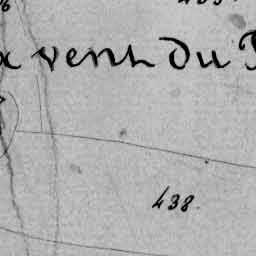 vent du
438.